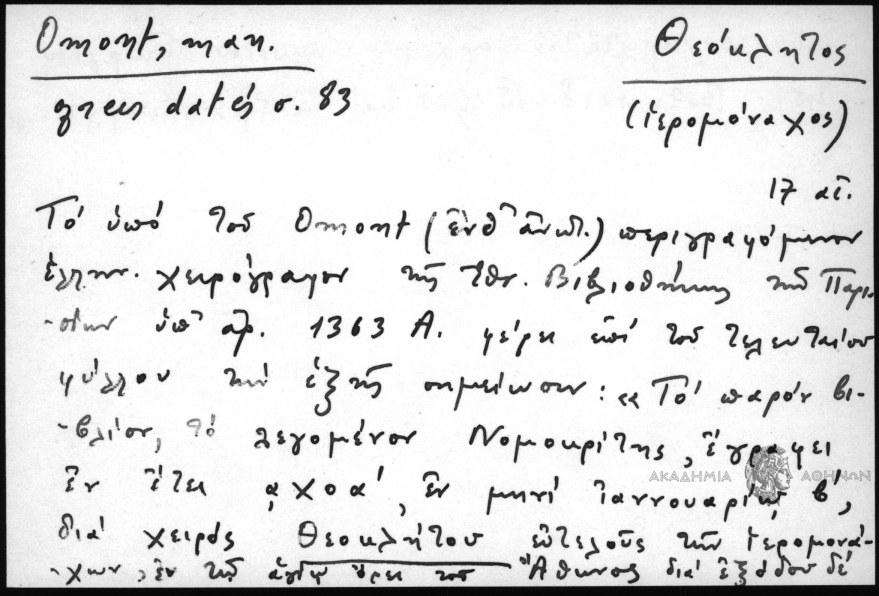 Omont, man.
grecs datés σ. 83
Θεόκλητος
(ἱερομόναχος)
17 αἰ.
Τό ὑπό τοῦ Omont (ἔνθ' ἀνωτ.) περιγραφόμενον
ἑλλην. χειρόγραφον τῆς Ἐθν. Βιβλιοθήκης τῶν Παρι-
-σίων ὑπ' ἀρ. 1363 Α. φέρει ἐπί τοῦ τελευταίου
φύλλου τήν ἑξῆς σημείωσιν: «Τό παρόν βι-
-βλίον, τό λεγομένον Νομοκρίτης, ἔγραφει
ἐν ἔτει αχοα', ἐν μηνί ἰαννουαρίῳ β',
διά χειρός Θεοκλήτου εὐτελοῦς τῶν ἱερομονά-
-χων, ἐν τῷ ἁγίῳ ὄρει τοῦ Ἄθωνος διά ἐξόδου δέ
ΑΚΑΔΗΜΙΑ ΑΘΗΝΩΝ